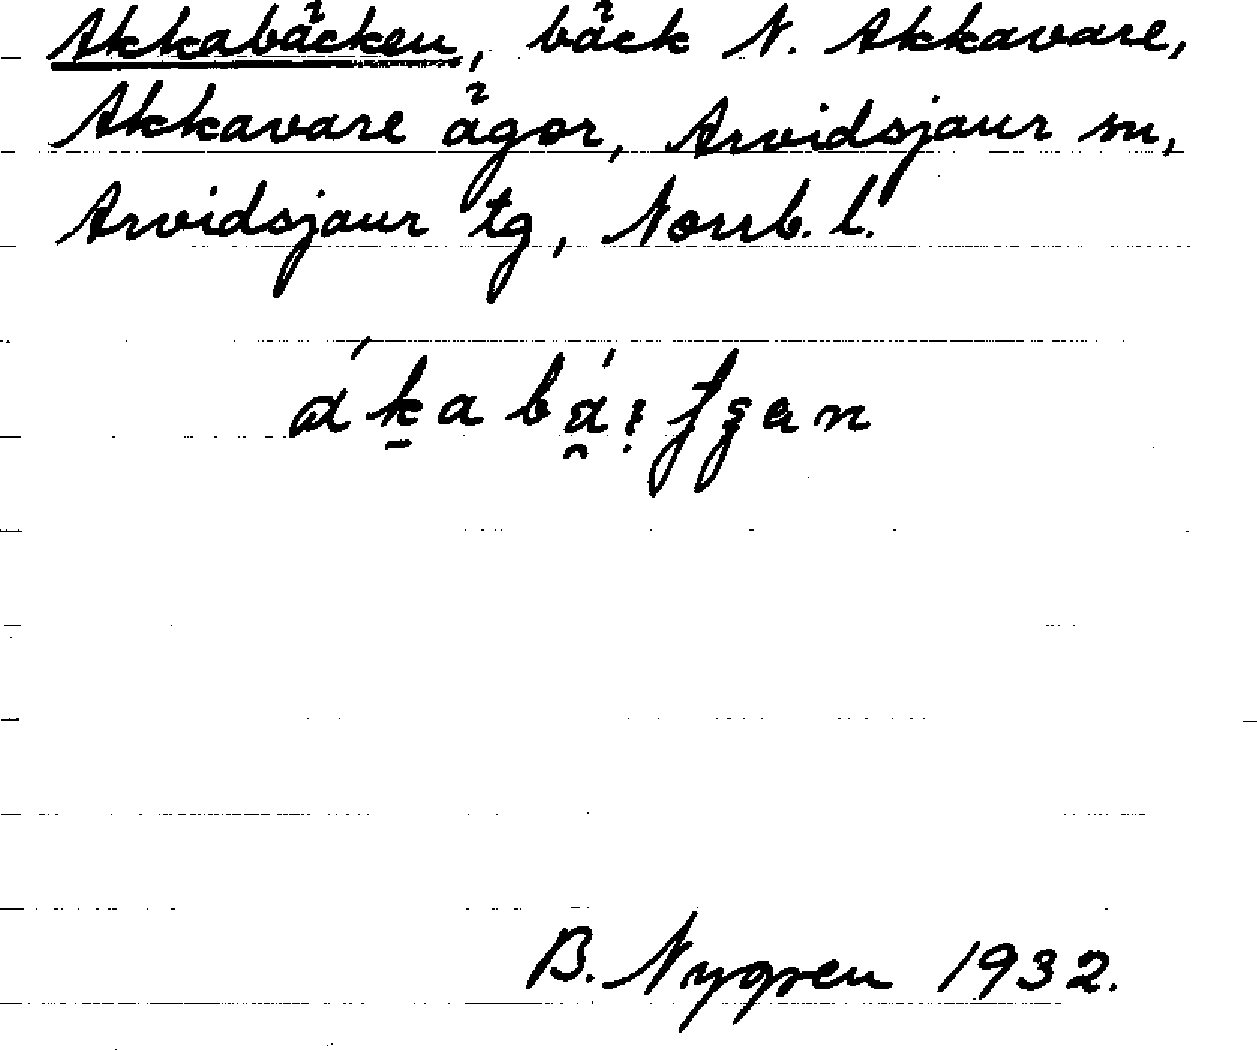 Akkabäcken, bäck N. Akkavare,
Akkavare ägor, Arvidsjaur sn,
Arvidsjaur tg, Norrb. l.
B. Nygren 1932.